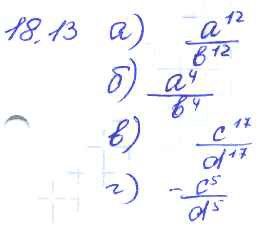 18.13 а) a^12/b^12
б) a^4/b^4
в) c^17/d^17
г) -c^5/d^5